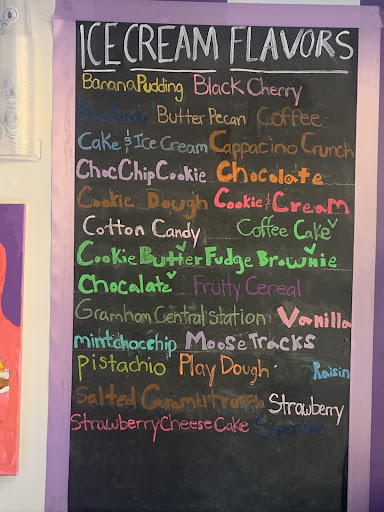 ICE CREAM FLAVORS
Banana Pudding Black Cherry
Butter Pecan Coffee
Cake & Ice Cream Cappacino Crunch
Choc Chip Cookie Chocolate
Cookie Dough Cookie & Cream
Cotton Candy Coffee Cake
Cookie Butter Fudge Brownie
Chocalate Fruity Cereal
Gramham Central station Vanilla
mint choc chip Moose Tracks
Pistachio Play Dough Raisin
Salted Caramel truffle Strawberry
Strawberry Cheese Cake